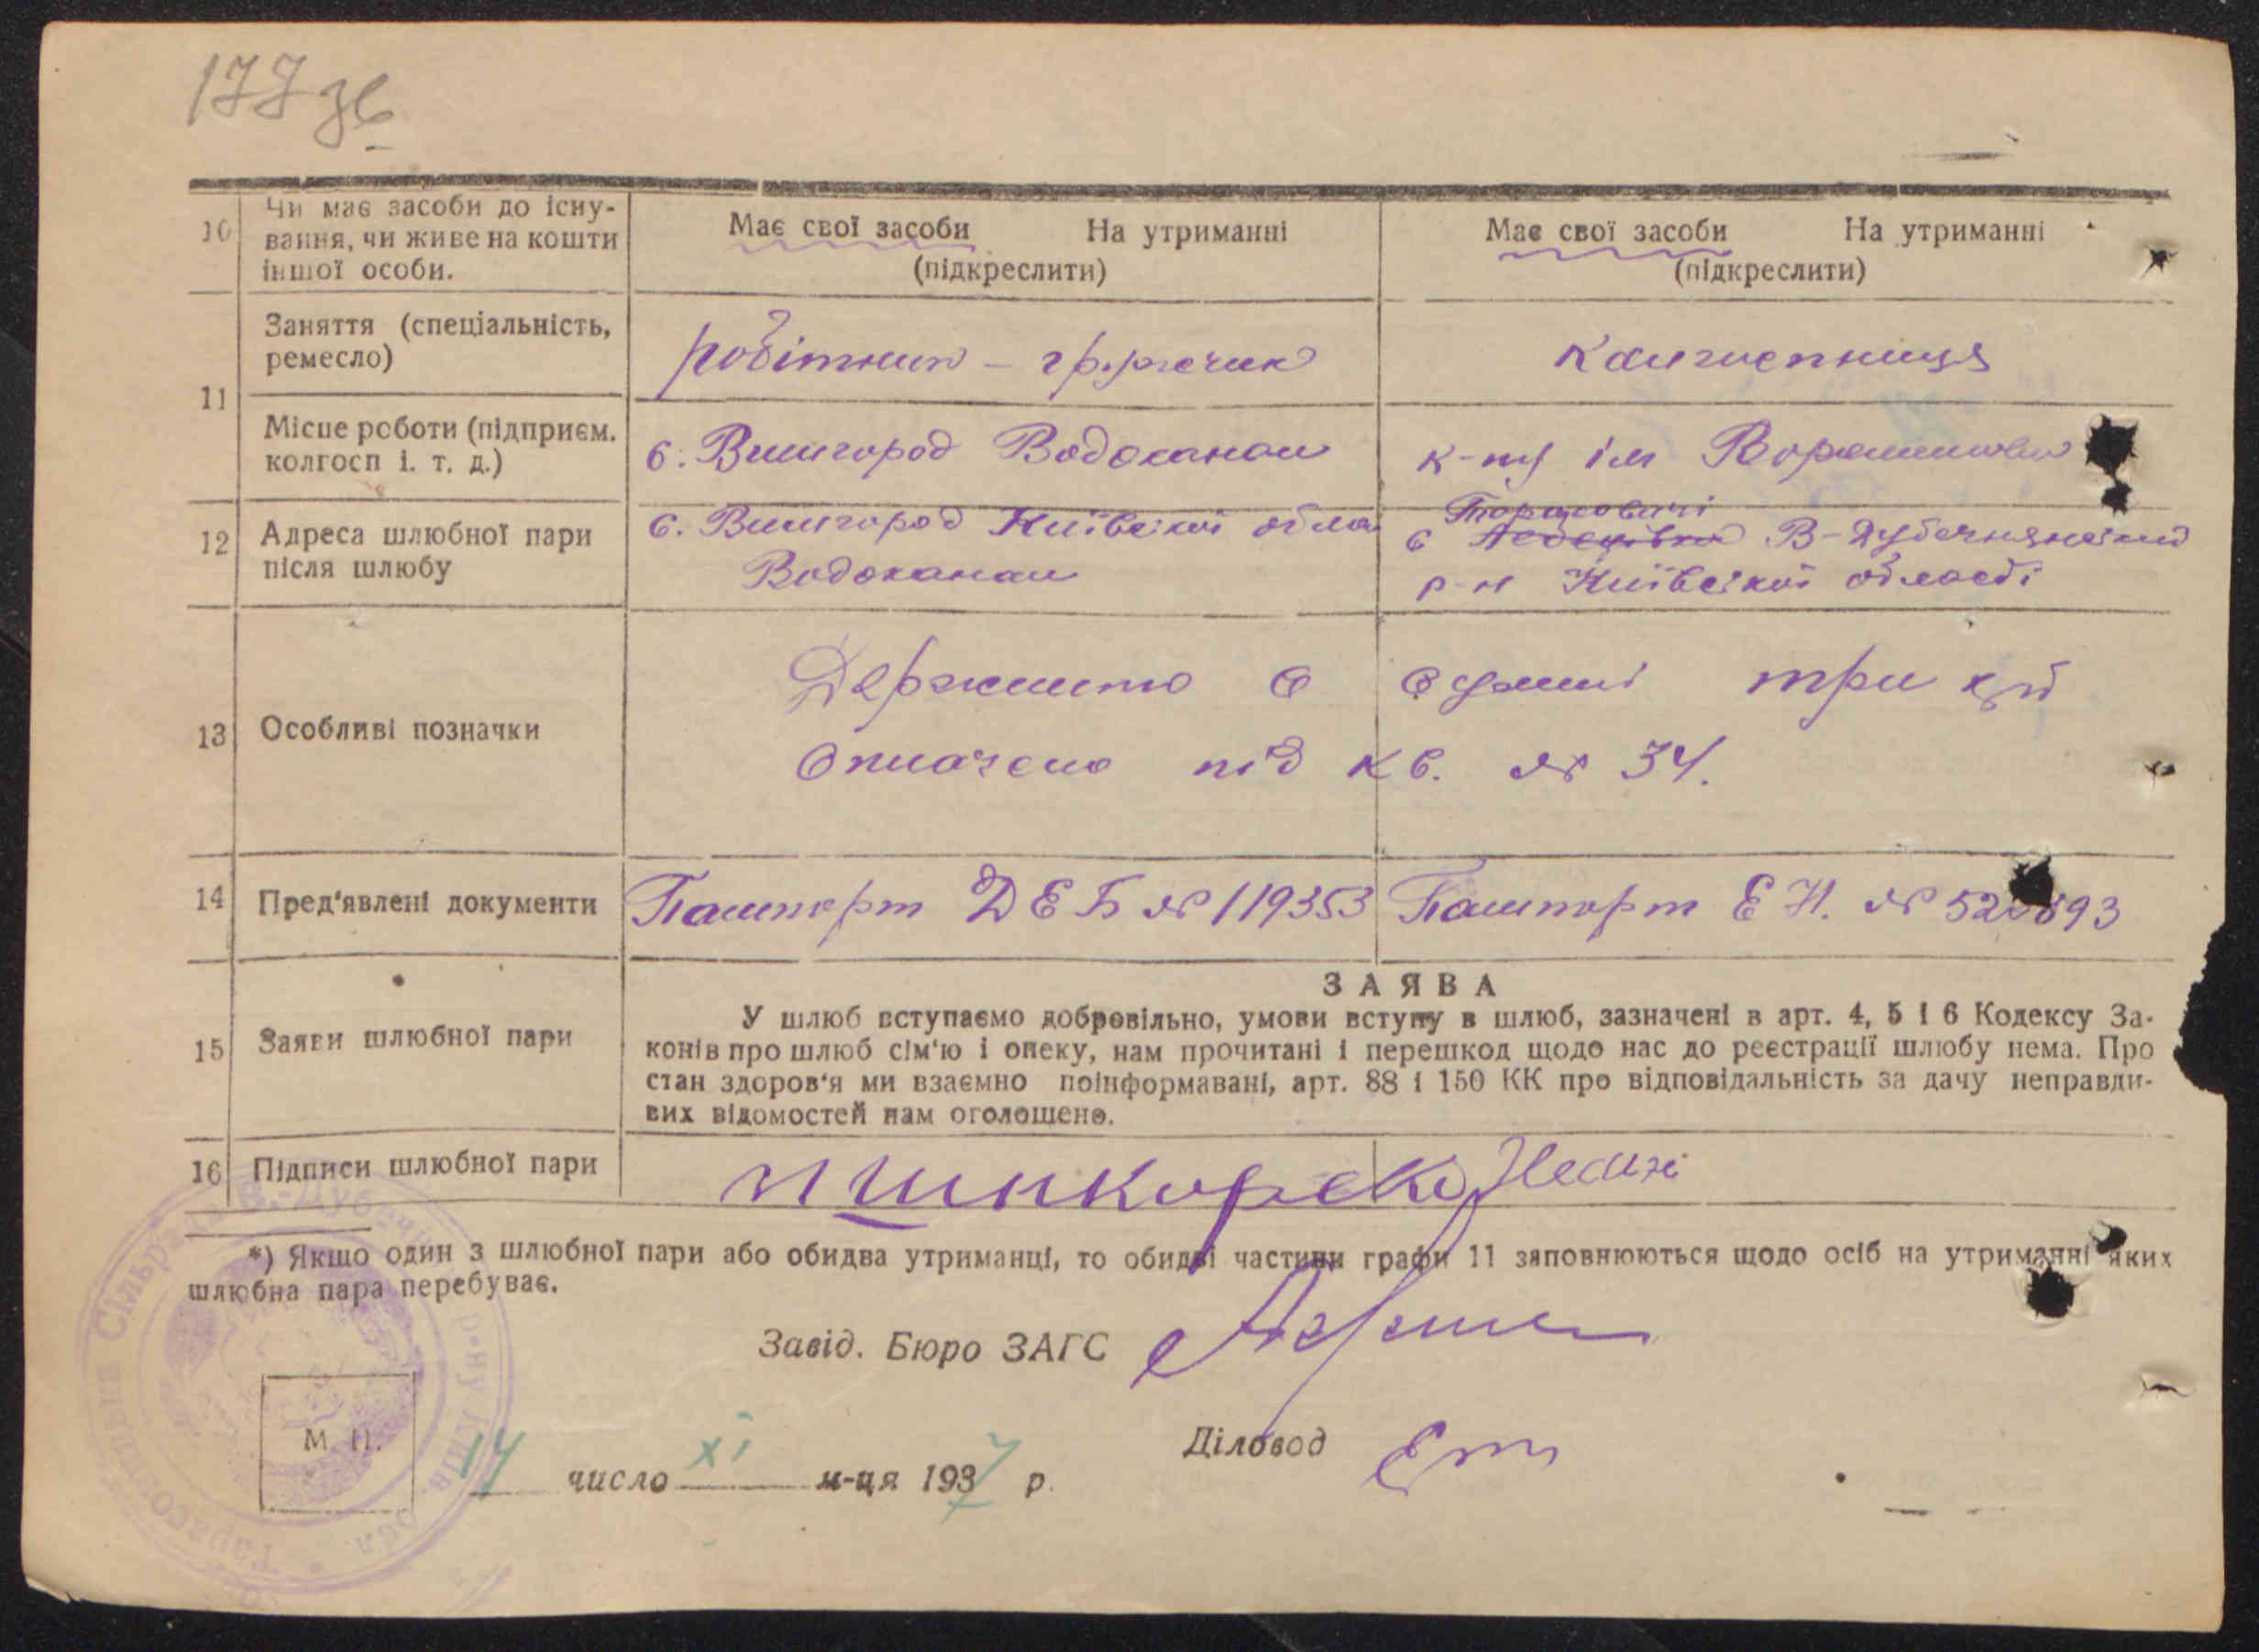 177 зв
10 Чи має засоби до існу-
вання, чи живе на кошти
іншої особи.
Має свої засоби На утриманні
(підкреслити)
Має свої засоби На утриманні
(підкреслити)
11 Заняття (спеціальність,
ремесло)
робітник –
колгоспниця
Місце роботи (підприєм.
колгосп і. т. д.)
с. Вишгород Водоканал
к-пу ім Ворошилова
12 Адреса шлюбної пари
після шлюбу
с. Вишгород Київської обла
Водоканал
с В-Дубечнянський
р-н Київської області
13 Особливі позначки
Держмито в сумі три крб
Оплачено під кв. № 34.
14 Пред'явлені документи
Пашпорт ДЕБ № 119353
Пашпорт Е Н. №
15 Заяви шлюбної пари
ЗАЯВА
У шлюб вступаємо добровільно, умови вступу в шлюб, зазначені в арт. 4, 5 і 6 Кодексу За-
конів про шлюб сім'ю і опеку, нам прочитані і перешкод щодо нас до реєстрації шлюбу нема. Про
стан здоров'я ми взаємно поінформавані, арт. 88 і 150 КК про відповідальність за дачу неправди-
вих відомостей нам оголошено.
16 Підписи шлюбної пари
*) Якщо один з шлюбної пари або обидва утриманці, то обидві частини графи 11 заповнюються щодо осіб на утриманні яких
шлюбна пара перебуває.
Завід. Бюро ЗАГС
М. П.
Діловод
14 число XI м-ця 1937 р.